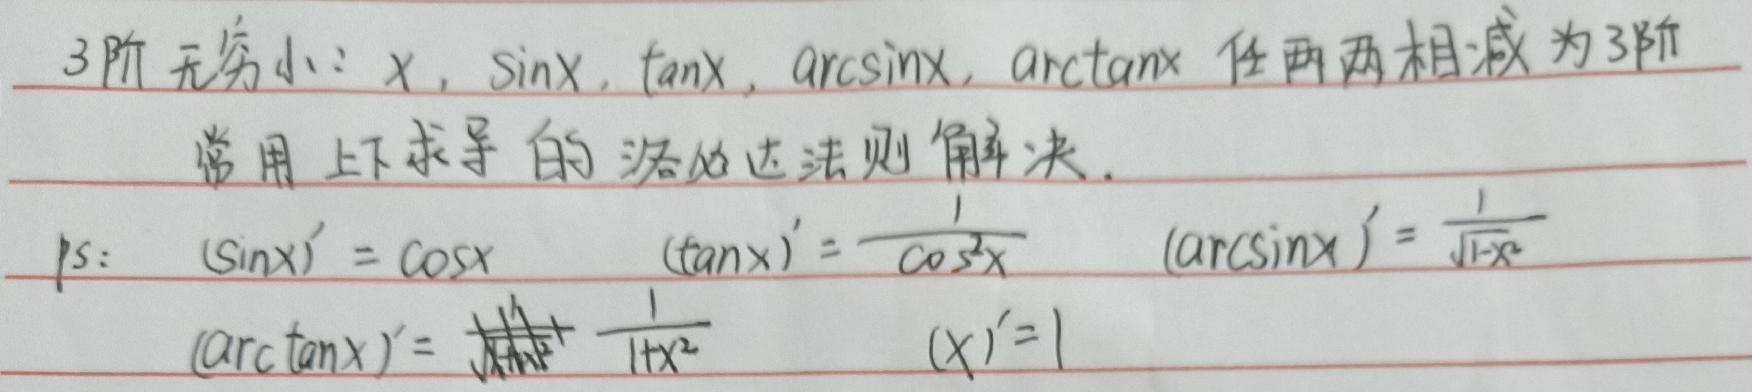 3阶无穷小: x, sinx, tanx, arcsinx, arctanx 任两两相减为3阶
常用上下求导的洛必达法则解决.
ps: (sinx)′ = cosx (tanx)′ = 1/cos²x (arcsinx)′ = 1/√1-x²
(arctanx)′ = 1/1+x² (x)′=1